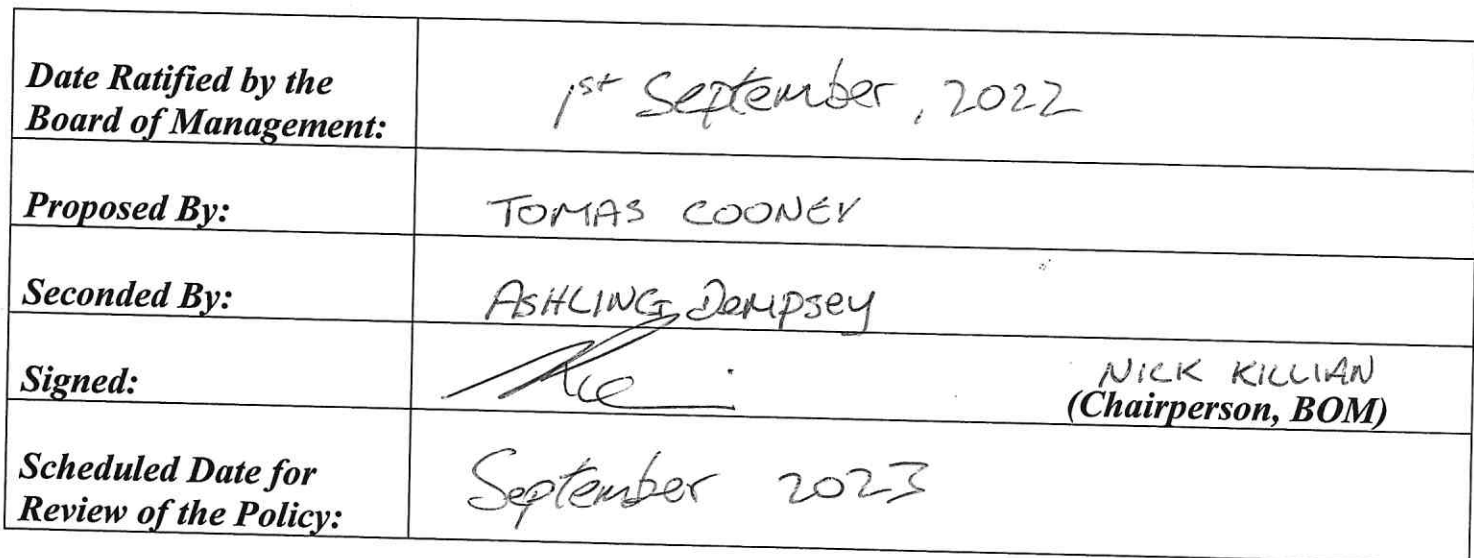 Date Ratified by the
Board of Management:
1st September, 2022
Proposed By:
TOMAS COONEY
Seconded By:
ASHLING Dempsey
Signed:
NICK KILLIAN
(Chairperson, BOM)
Scheduled Date for
Review of the Policy:
September 2023